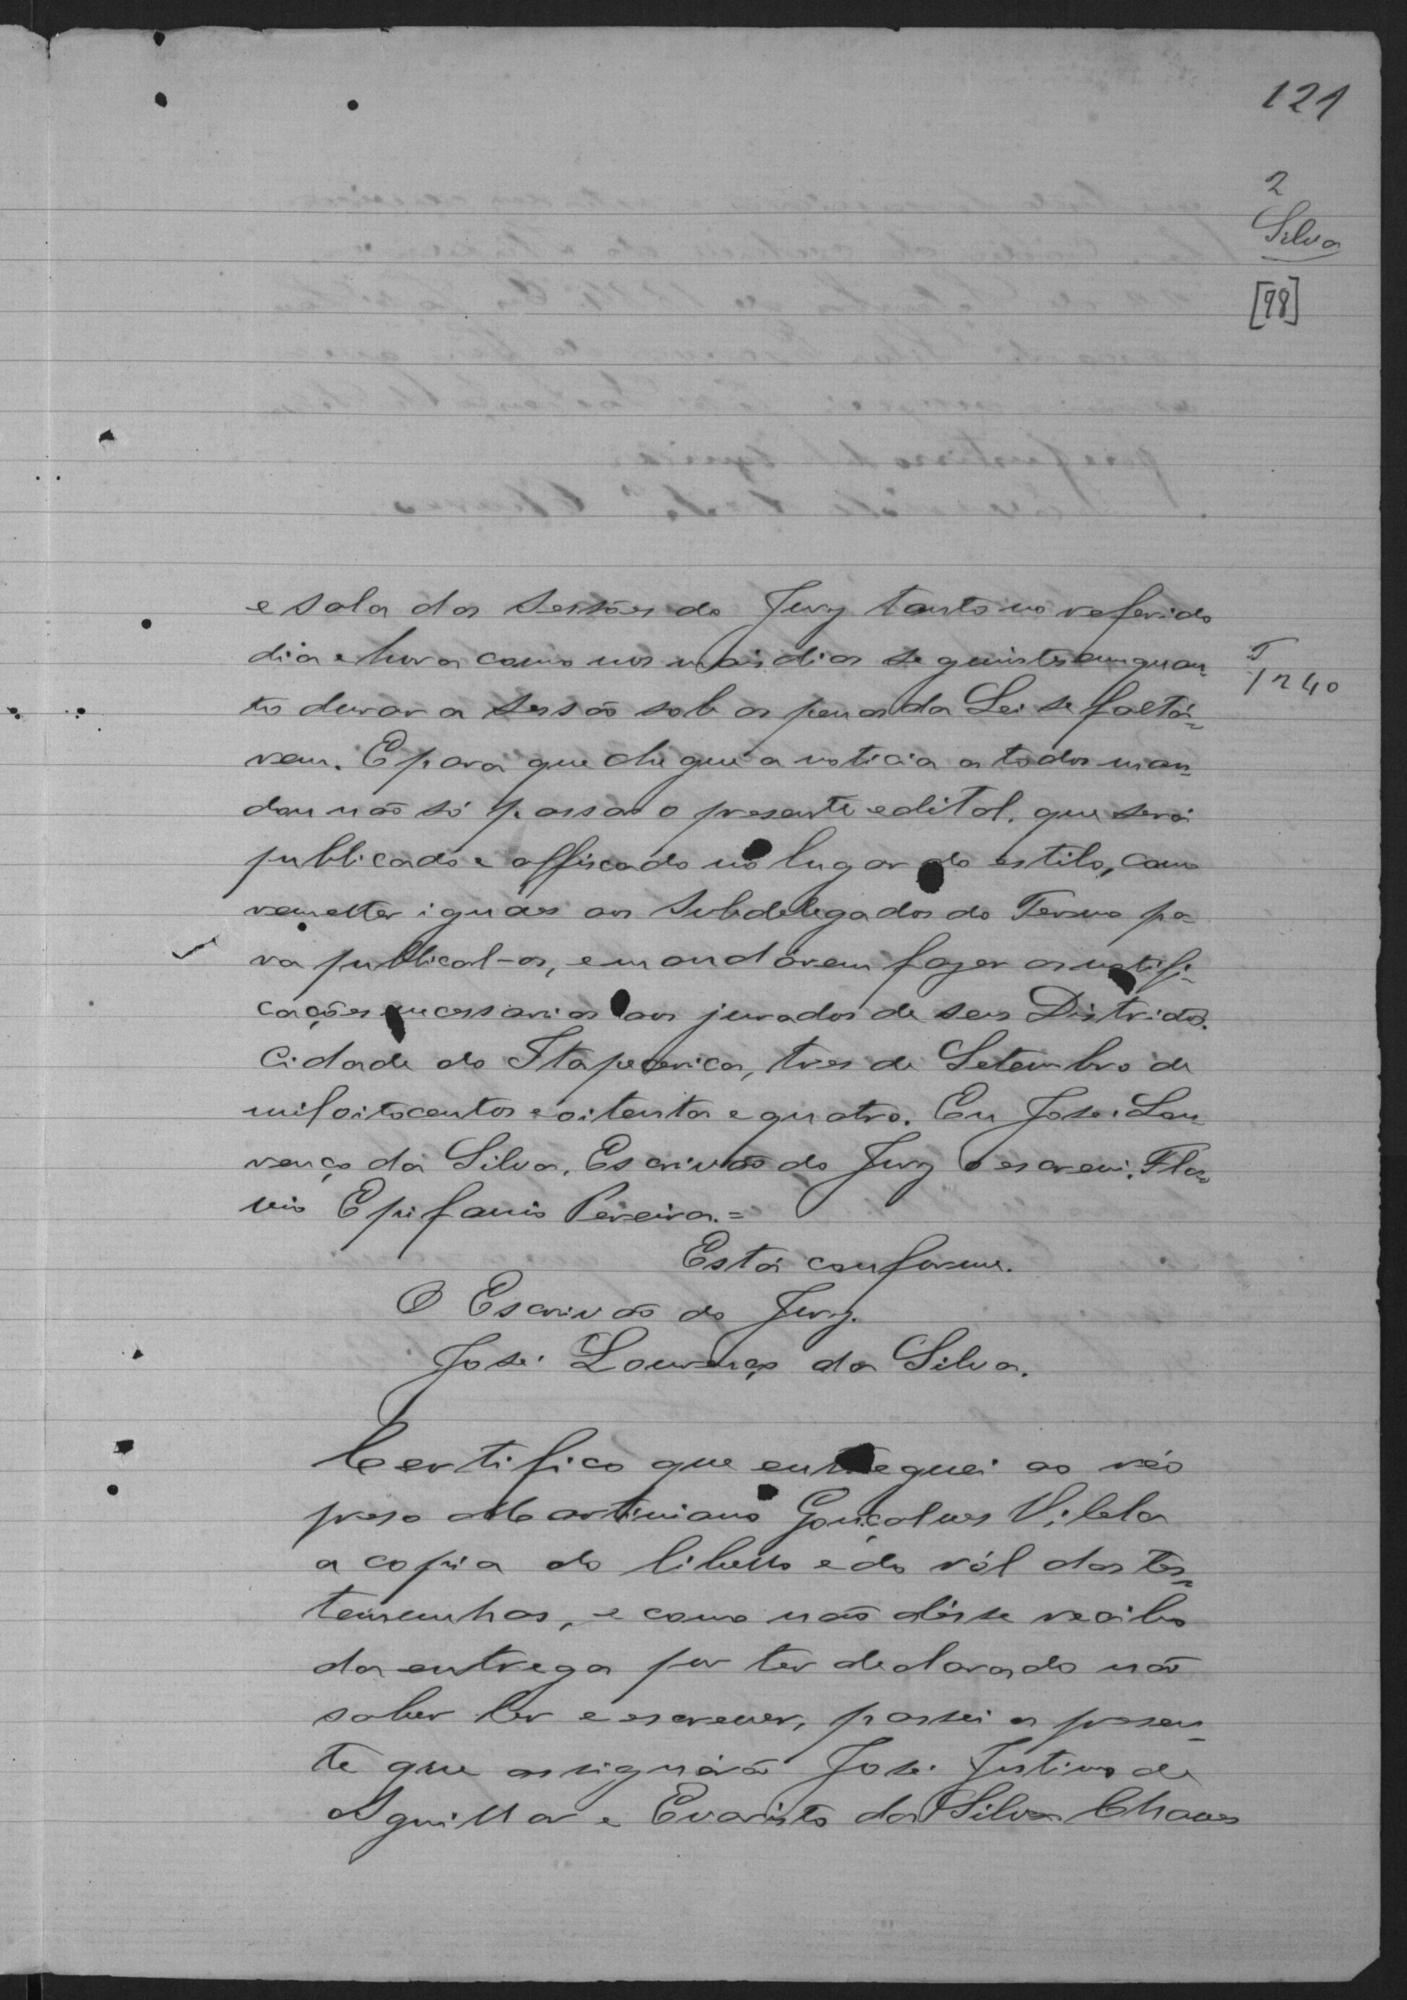 121
2
Silva
[98]
e sala das sessões do Jury tanto no referido
dia e hora como nos mais dias seguintes emquan-
to durar a sessão sob as penas da Lei se faltá-
rem. E para que chegue a noticia a todos man-
dou não só passar o presente edital, que será
publicado e affixado no lugar do estilo, como
remetter iguaes aos Subdelegados do Termo pa-
ra publical-os, e mandárem fazer as notifi-
cações necessarias aos jurados de seus Districtos.
Cidade do Itapecerica, tres de Setembro de
mil oitocentos e oitenta e quatro. Eu José Lou
renço da Silva, Escrivão do Jury o escrevi. Fla
vio Epifanio Pereira.=
Está conforme.
O Escrivão do Jury.
José Lourenço da Silva.
Certifico que entreguei ao réo
preso Martiniano Gonçalves Vilela
a copia do libello e do ról das tes-
temunhas, e como não désse recibo
da entrega por ter declarado não
saber ler e escrever, passei a presen-
te que assignárão José Justino de
Aguillar e Evaristo da Silva Chaves